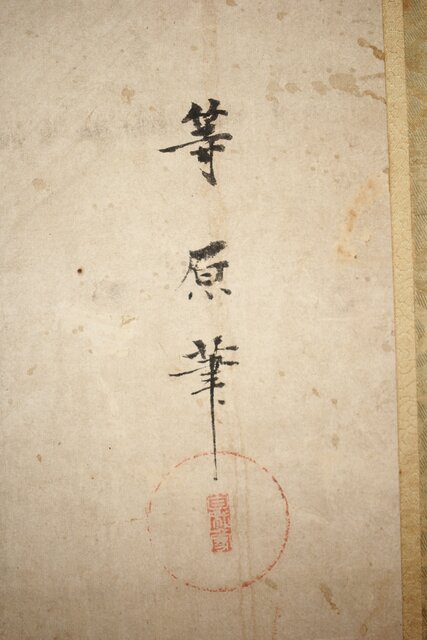 等原筆